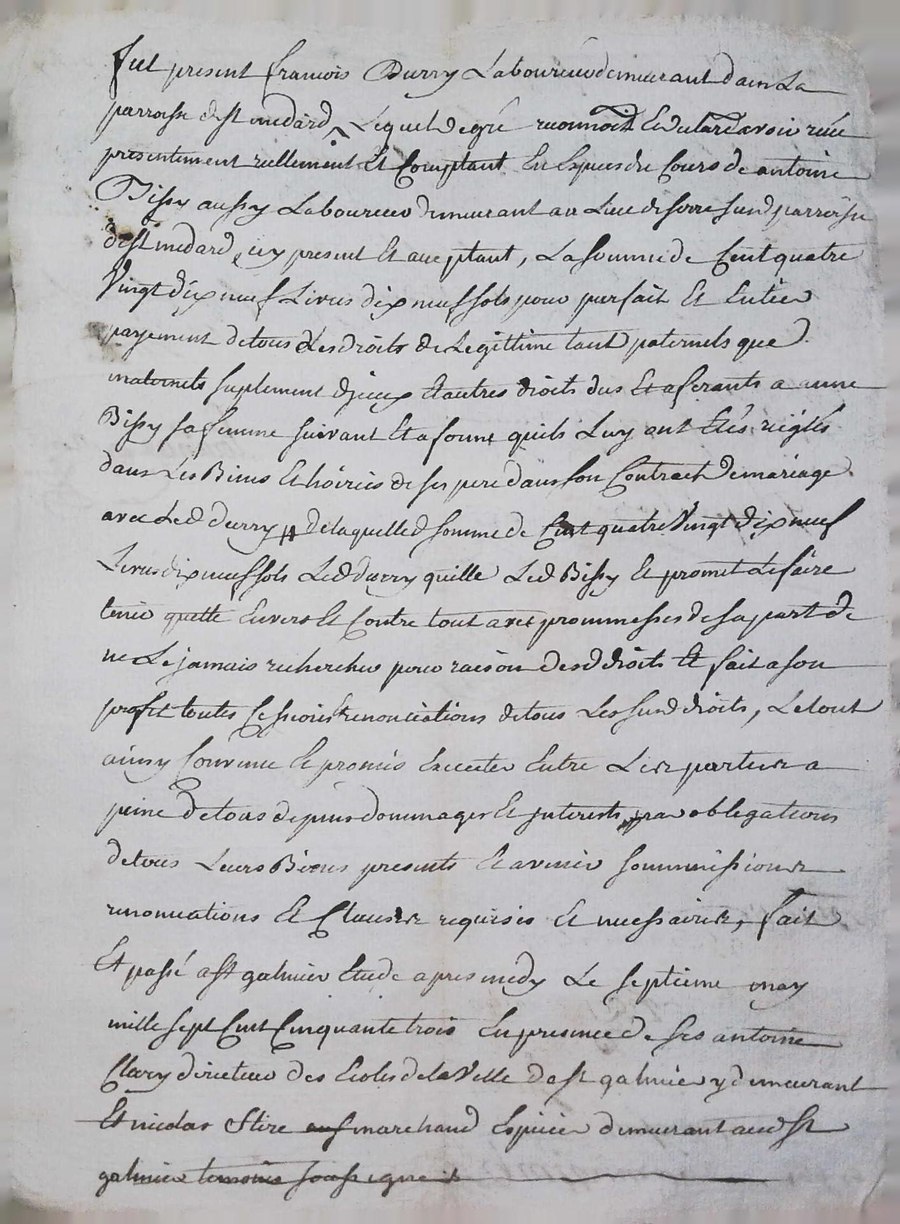 Fut present francois Durry Laboureur demeurant dans La
parroisse de st medard, Lequel de gré reconnoit Et declare avoir reçu
presentement reellement Et Comptant En Espesces du Cours de antoine
Bissy aussy Laboureur demeurant au Lieu de sur susd parroisse
de st medard, icy present Et acceptant, La somme de Cent quatre
Vingt dix neuf Livres dix neuf sols pour parfait Et Entier
payement de tous Les droits de Legittime tant paternels que
maternels suplement d'jceux Et autres droits dus Et aferants a anne
Bissy sa femme suivant Et a forme quils Luy ont Etés réiglés
dans Les Biens Et hoiries de ses pere dans son Contract de mariage
avec Led durry // de laquelle d somme de Cent quatre Vingt dix neuf
Livres dix neuf sols Led durry quitte Led Bissy Et promet Le faire
tenir quitte Envers Et Contre tout avec prommesses de sa part de
ne Le jamais rechercher pour raison desd droits Et fait a son
profit toutes Cessions Et renonciations de tous Les susd droits, Le tout
ainsy Convenu Et promis Executer Entre Les parties a
peine de tous depens dommages Et jnterests par obligations
de tous Leurs Biens presents Et avenir sommissions
renonciations Et Clauses requises Et necessaires, fait
Et passé a st galmier Etude apres midy Le septieme may
mille sept Cent Cinquante trois En presence de srs antoine
Clavy directeur des Ecoles de la Ville de st galmier y demeurant
Et nicolas marchand Epicier demeurant aud st
galmier temoins soussignés